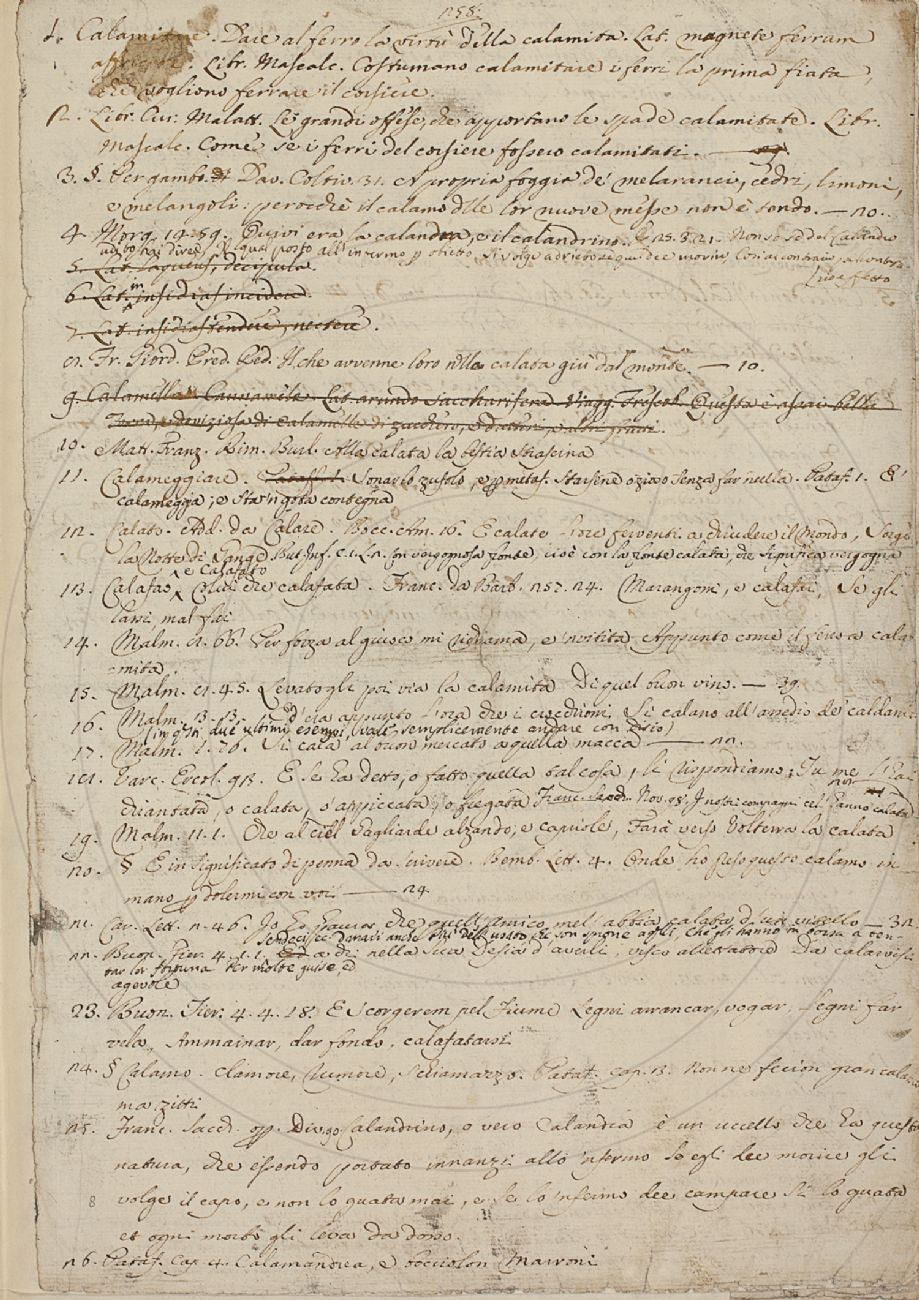 258.
1. Calamitare. Dare al ferro la virtù della calamita. Lat. magnete ferrum
. Libr. Mascalc. Costumano calamitare i ferri la prima fiata,
che vogliono ferrare il corsiere.
2. Libr. Cur. Malatt. Le grandi offese, che apportano le spade calamitate. Libr.
Mascalc. Come se i ferri del corsiere fossero calamitati. —
3. §. Per gambo. Dav. Coltiv. 31. A propria foggia de' melaranci, cedri, limoni,
e melangoli: perocchè il calamo delle lor nuove messe non è tondo. — 20.
4. Morg. 14. 59. Quivi era la calandra, e il calandrino. Non so se del Calandro
5. Lat. laqueus, decipula.
6. Lat. insidias incidere.
in
7. Lat. insidias tendere, nectere.
8. Fr. Giord. Pred. Red. Il che avvenne loro nella calata giù dal monte. — 10.
9. Calamella. Cannamele. Lat. arundo saccharifera. Viagg. Frescob. Questa è assai bella
di calamelle di zucchero, e datteri, e altri frutti.
10. Matt. Franz. Rim. Burl. Alla calata la bestia strascina
11. Calameggiare. Sonar lo zufolo, e p. metaf. Starsene ozioso senza far nulla. Pataf. 1. E'
calameggia, e sta 'n gota contegna
12. Calato. Add. da Calare. Bocc. Am. 16. E calate l'ore ferventi a chiudere il Mondo, sorge
la Notte di Gange. But. Inf. Con vergognosa fronte, cioè con la fronte calata, che significa vergogna
e Calafato
13. Calafao, Colui che calafata. Franc. da Barb. 257. 24. Marangoni, e calafai, Se gli
lassi, mal fai
14. Malm. 2. 66. Per forza al giuoco mi richiama, e 'nvita Appunto come il ferro a cala-
mita.
15. Malm. 8. 45. Levatogli poi via la calamita Di quel buon vino. — 39.
16. Malm. 13. 13. E' era appunto l'ora che i crocchioni Si calano all'assedio de' caldani
(in q.sti due ultimi esempi, vale semplicemente andare con disio)
17. Malm. 1. 76. Si cala al buon mercato a quella macca — 22.
18. Varc. Ercol. 93. E se ha detto, o fatto quella tal cosa, si rispondiamo; Tu me l'hai
chiantata, o calata, o appiccata, o fregata. Franc. Sacch. Nov. 98. I nostri compagni ce l'hanno calata
19. Malm. 11. 1. Che al ciel gagliarde alzando, e capriole, Farà verso Volterra la calata
20. § E in significato di penna da scrivere. Bemb. Lett. 4. Onde ho preso questo calamo in
mano p dolermi con voi — 24.
21. Car. Lett. 2. 46. Io ho paura, che quell'amico mel' abbia calata d'un vitello — 32.
22. Buon. Fier. 4. 1. 1. a di nella sua desia d'avelli, visco allettatore Da calarvisi
tar lor fortuna Per molte guise, ed
agevole
23. Buon. Fier. 4. 4. 18. E scorgerem pel Fiume Legni arrancar, vogar, Legni far
vela, Ammainar, dar fondo, calafatarsi
24. § Calamo. Clamore, Rumore, Schiamazzo. Pataf. cap. 3. Non ne fecion gran calamo
ma zitti
25. Franc. Sacch. op. Div. 90 Calandrino, o vero Calandra è un uccello che ha questa
natura, che essendo portato innanzi allo 'nfermo se egli dee morire gli
volge il capo, e non lo guata mai, e se lo 'nfermo dee campare si lo guata
8
et ogni morbo gli leva da dosso.
26. Pataf. Cap. 4. Calamandrea, e bocciolon Marroni